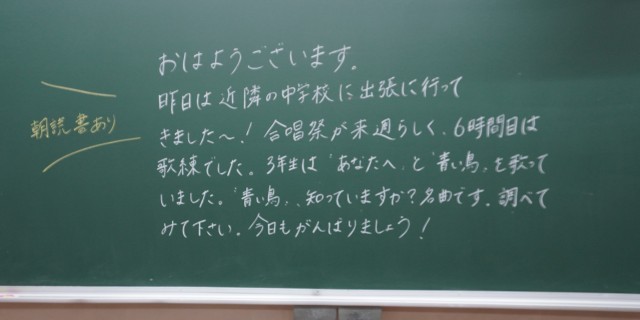 おはようございます。
昨日は近隣の中学校に出張に行って
きました〜！合唱祭が来週らしく、6時間目は
朝読書あり
歌練でした。3年生は「あなたへ」と「青い鳥」を歌って
いました。「青い鳥」、知っていますか？名曲です。調べて
みて下さい。今日もがんばりましょう！